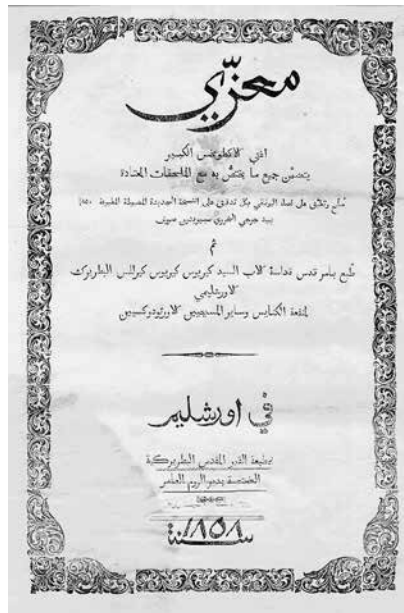 معزّي
اعني الاكطوئخس الكبير
يتضمن جميع ما يختص به مع الملحقات المعتادة
على اصله اليوناني بكل تدقيق على النسخة الجديدة المضبوطة المطبوعة ١٨٥٠
بيد
ثم
طبع بامر قدس قداسة كلاب السيد كيريوس كيريوس كيرللس البطريرك
كلاورشليمي
لمنفعة الكنايس وساير المسيحيين كلاورثوذوكسيين
في اورشليم
بمطبعة القبر المقدس البطريركية
المختصة بدير الروم العامر
سنة ١٨٥٨